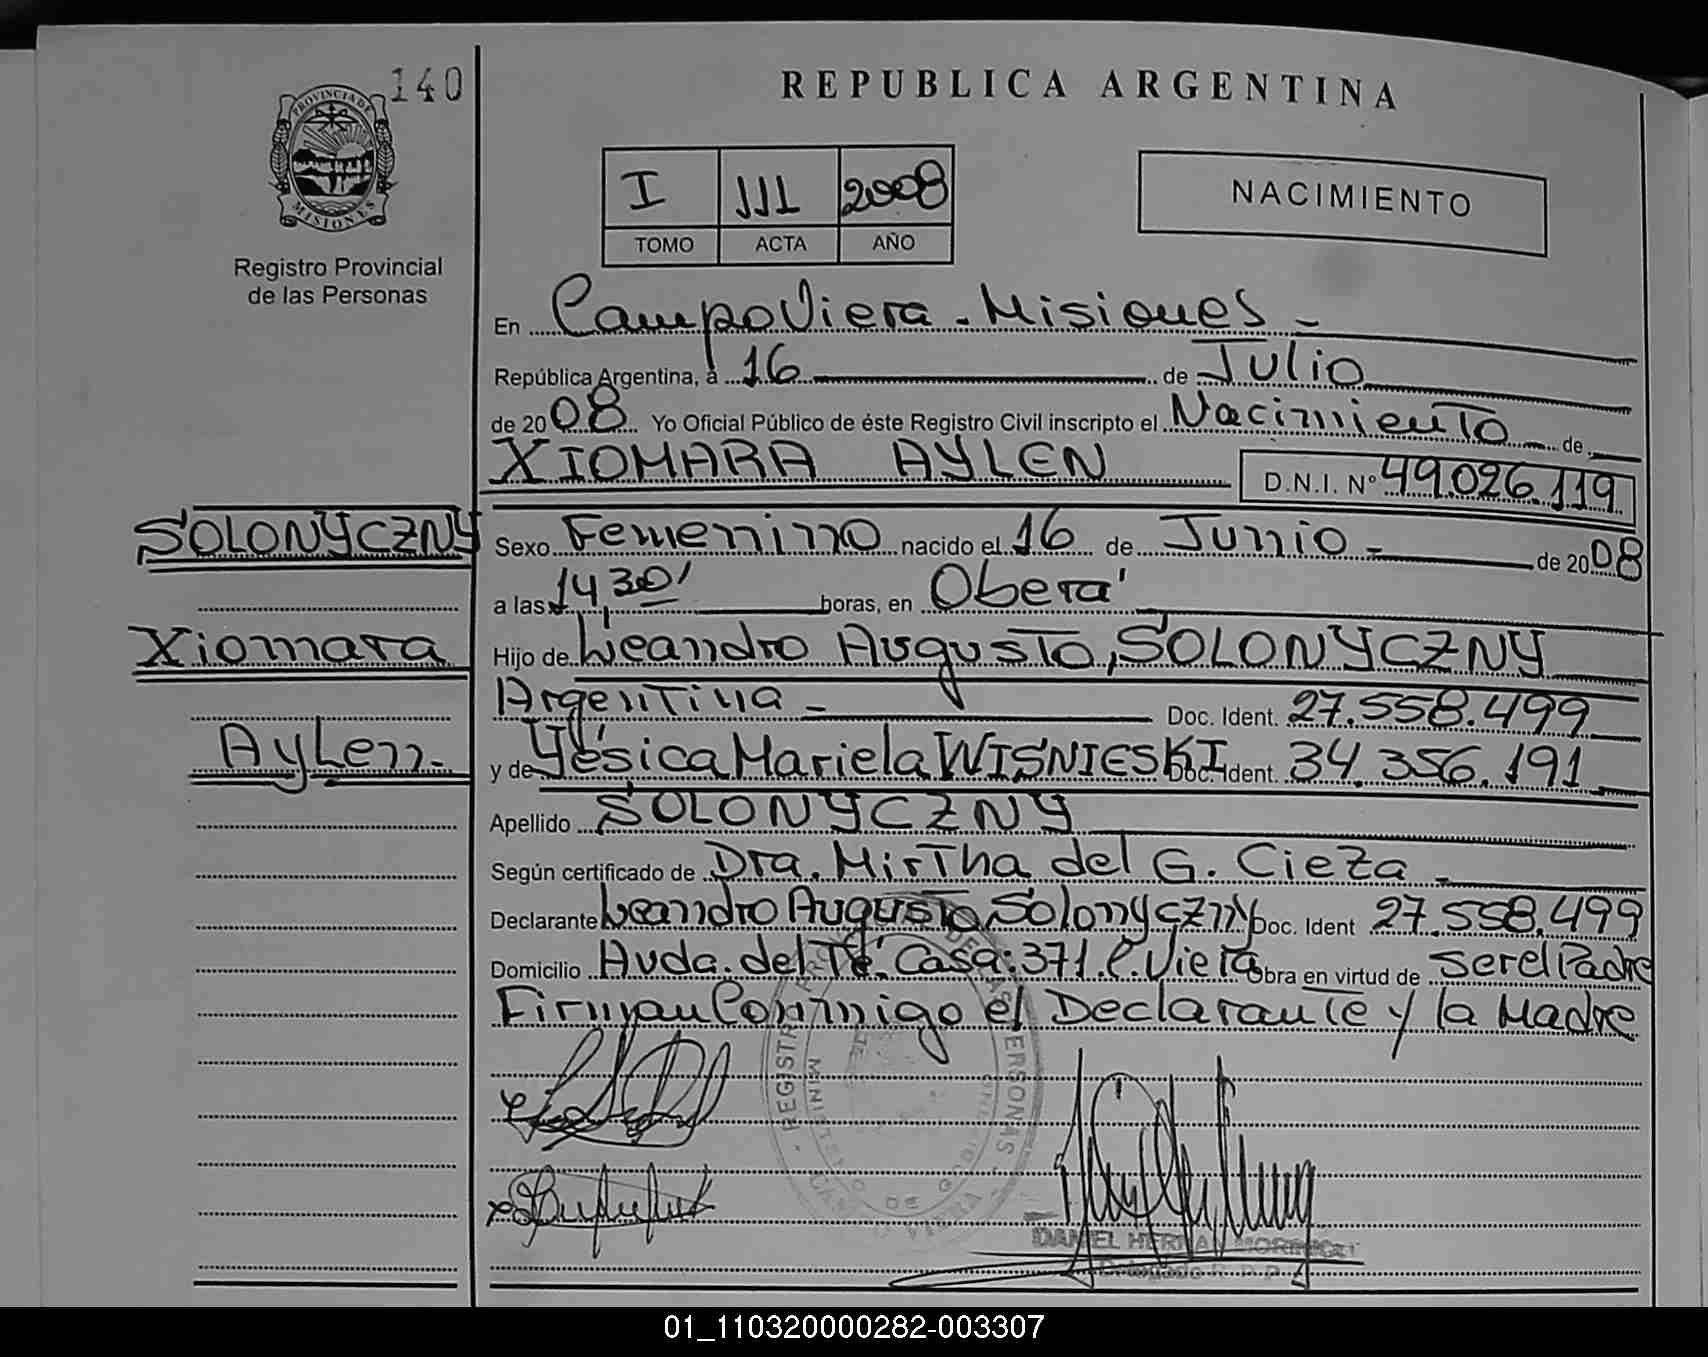 140
REPUBLICA ARGENTINA
PROVINCIA DE
MISIONES
Registro Provincial
de las Personas
I 111 2008
TOMO ACTA AÑO
NACIMIENTO
En Campo Viera - Misiones -
República Argentina, a 16 de Julio
de 2008 Yo Oficial Público de éste Registro Civil inscripto el Nacimiento de
XIOMARA AYLEN D.N.I. Nº 49.026.119
SOLONYCZNY
Xiomara
Aylen.
Sexo Femenino nacido el 16 de Junio - de 2008
a las 14,30' horas, en Oberá
Hijo de Leandro Augusto, SOLONYCZNY
Argentina - Doc. Ident. 27.558.499
y de Yésica Mariela WISNIESKI Doc. Ident. 34.356.191
Apellido SOLONYCZNY
Según certificado de Dra. Mirtha del G. Cieza -
Declarante Leandro Augusto Solonyczny Doc. Ident 27.558.499
Domicilio Avda. del Té. Casa: 371. C. Viera Obra en virtud de ser el Padre
Firman Conmigo el Declarante y la Madre
REGISTRO DE LAS PERSONAS
MINISTERIO DE GOBIERNO
VIERA
DANIEL HERNAN
Delegado R. P. P.
01_110320000282-003307